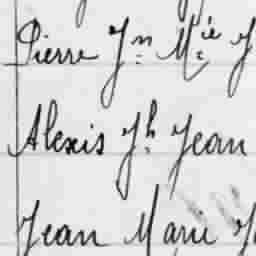 Pierre Jn Mie J
Alexis Jh Jean
Jean Marie